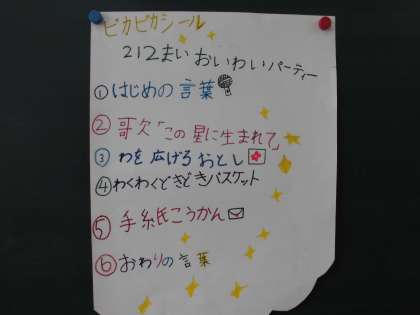 ピカピカシール
212まい おいわいパーティー
①はじめの言葉
②歌「この星に生まれて」
③わを広げるおとし
④わくわくどきどきバスケット
⑤手紙こうかん
⑥おわりの言葉